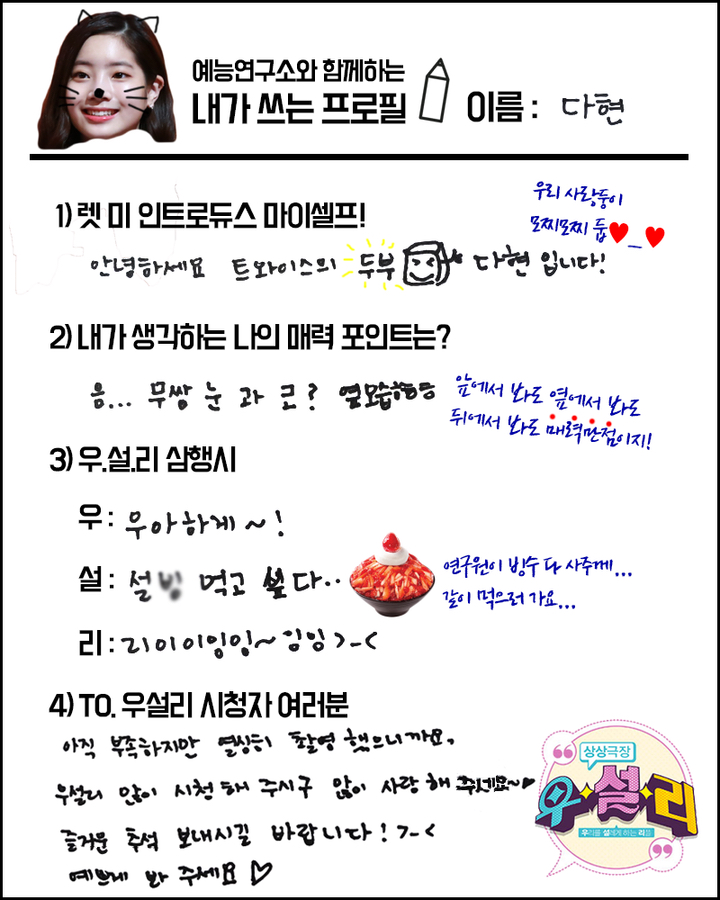 예능연구소와 함께하는
내가 쓰는 프로필 이름 : 다현
1) 렛 미 인트로듀스 마이셀프!
우리 사랑둥이
모찌모찌 둡♥_♥
안녕하세요 트와이스의 두부 다현 입니다!
2) 내가 생각하는 나의 매력 포인트는?
음... 무쌍 눈 과 큰?
앞에서 봐도 옆에서 봐도
뒤에서 봐도 매력만점이지!
3) 우.설.리 삼행시
우 : 우아하게~!
설 : 설빙 먹고 싶다..
연구원이 빙수 다 사주께...
같이 먹으러 가요...
리 : 리이이잉잉~ 잉잉 >_<
4) TO. 우설리 시청자 여러분
아직 부족하지만 열심히 촬영 했으니까요,
우설리 많이 시청 해 주시구 많이 사랑 해 주세요~♥
즐거운 추석 보내시길 바랍니다! >_<
예쁘게 봐 주세요♡
상상극장
우설리
우리를 설레게 하는 리플